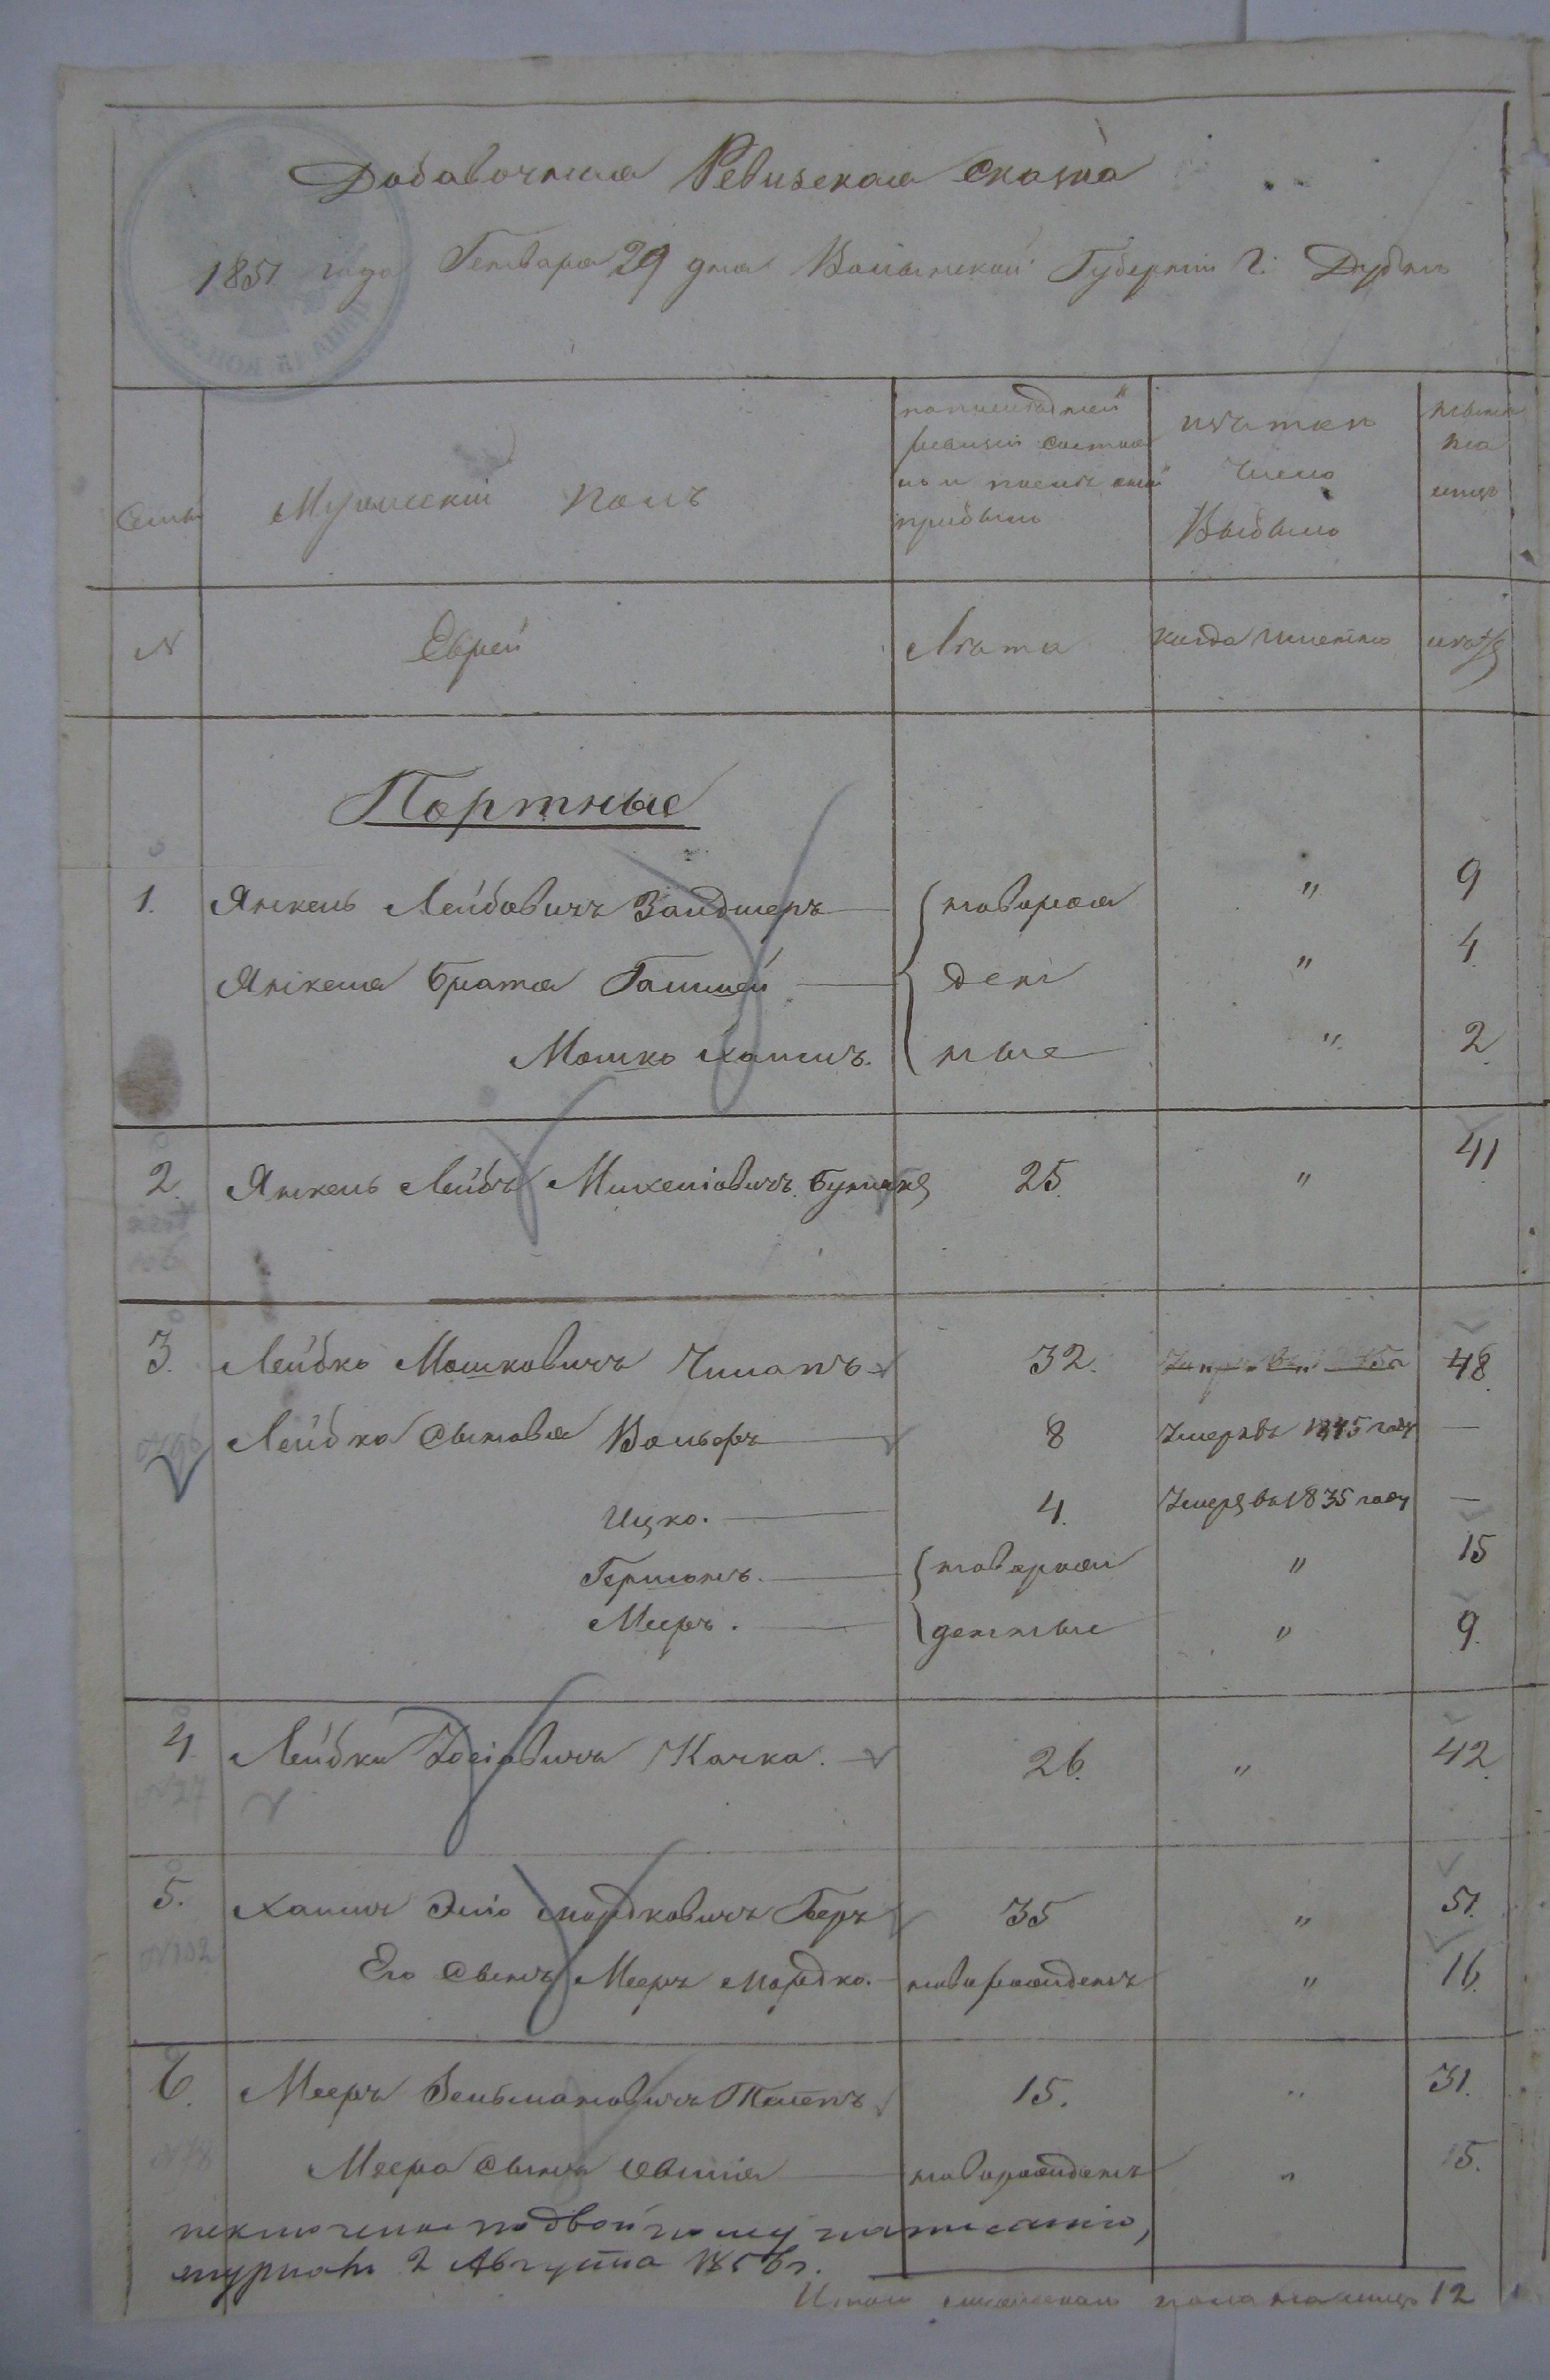 Добавочная Ревизская Сказка
1851 года Генваря 29 дня Волынской Губернии г. Дубно
Семьи
Мужеский полъ
по последней ревизии состояло и после оной прибыло
изъ того числа Выбыло
ныне на лицо
N
Еврей
Лета
когда именно
лета
Портные
1. Янкель Лейбовичъ Зандмеръ новорож " 9
Янкеля брата ден " 4
Мошко Хаимъ. ные " 2
2. Янкель Лейбъ 25. " 41
3. Лейбко Мошковичъ 32. 48.
Лейбка Сыновья Вольфъ 8 Умеръ въ 1845 году —
Ицко. 4. Умеръ въ 1835 году —
Гершонъ. новорож " 15
Мееръ. денные " 9.
4. Лейбка Іосіовичъ Качка. 26. " 42.
N27
5. Хаимъ Эліо Мордковичъ Беръ 35 " 51.
N102 Его Сынъ Мееръ Мордко. новорожденъ " 16.
6. Мееръ Зельмановичъ 15. " 31.
Меера Сынъ новорожденъ " 5.
исключенъ по двойному написанію,
журналъ 2 Августа 1856 г.
Итого мужескаго пола на лицо 12